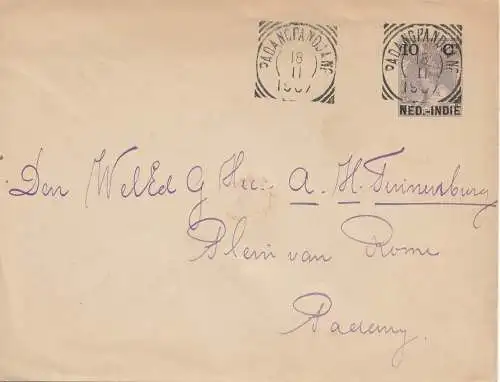 PADANGPANDJANG
18
11
1907
PADANGPANDJANG
18
11
10 C
NED.-INDIË
Den WelEd G Heer A. H.
Plein van Rome
Padang.